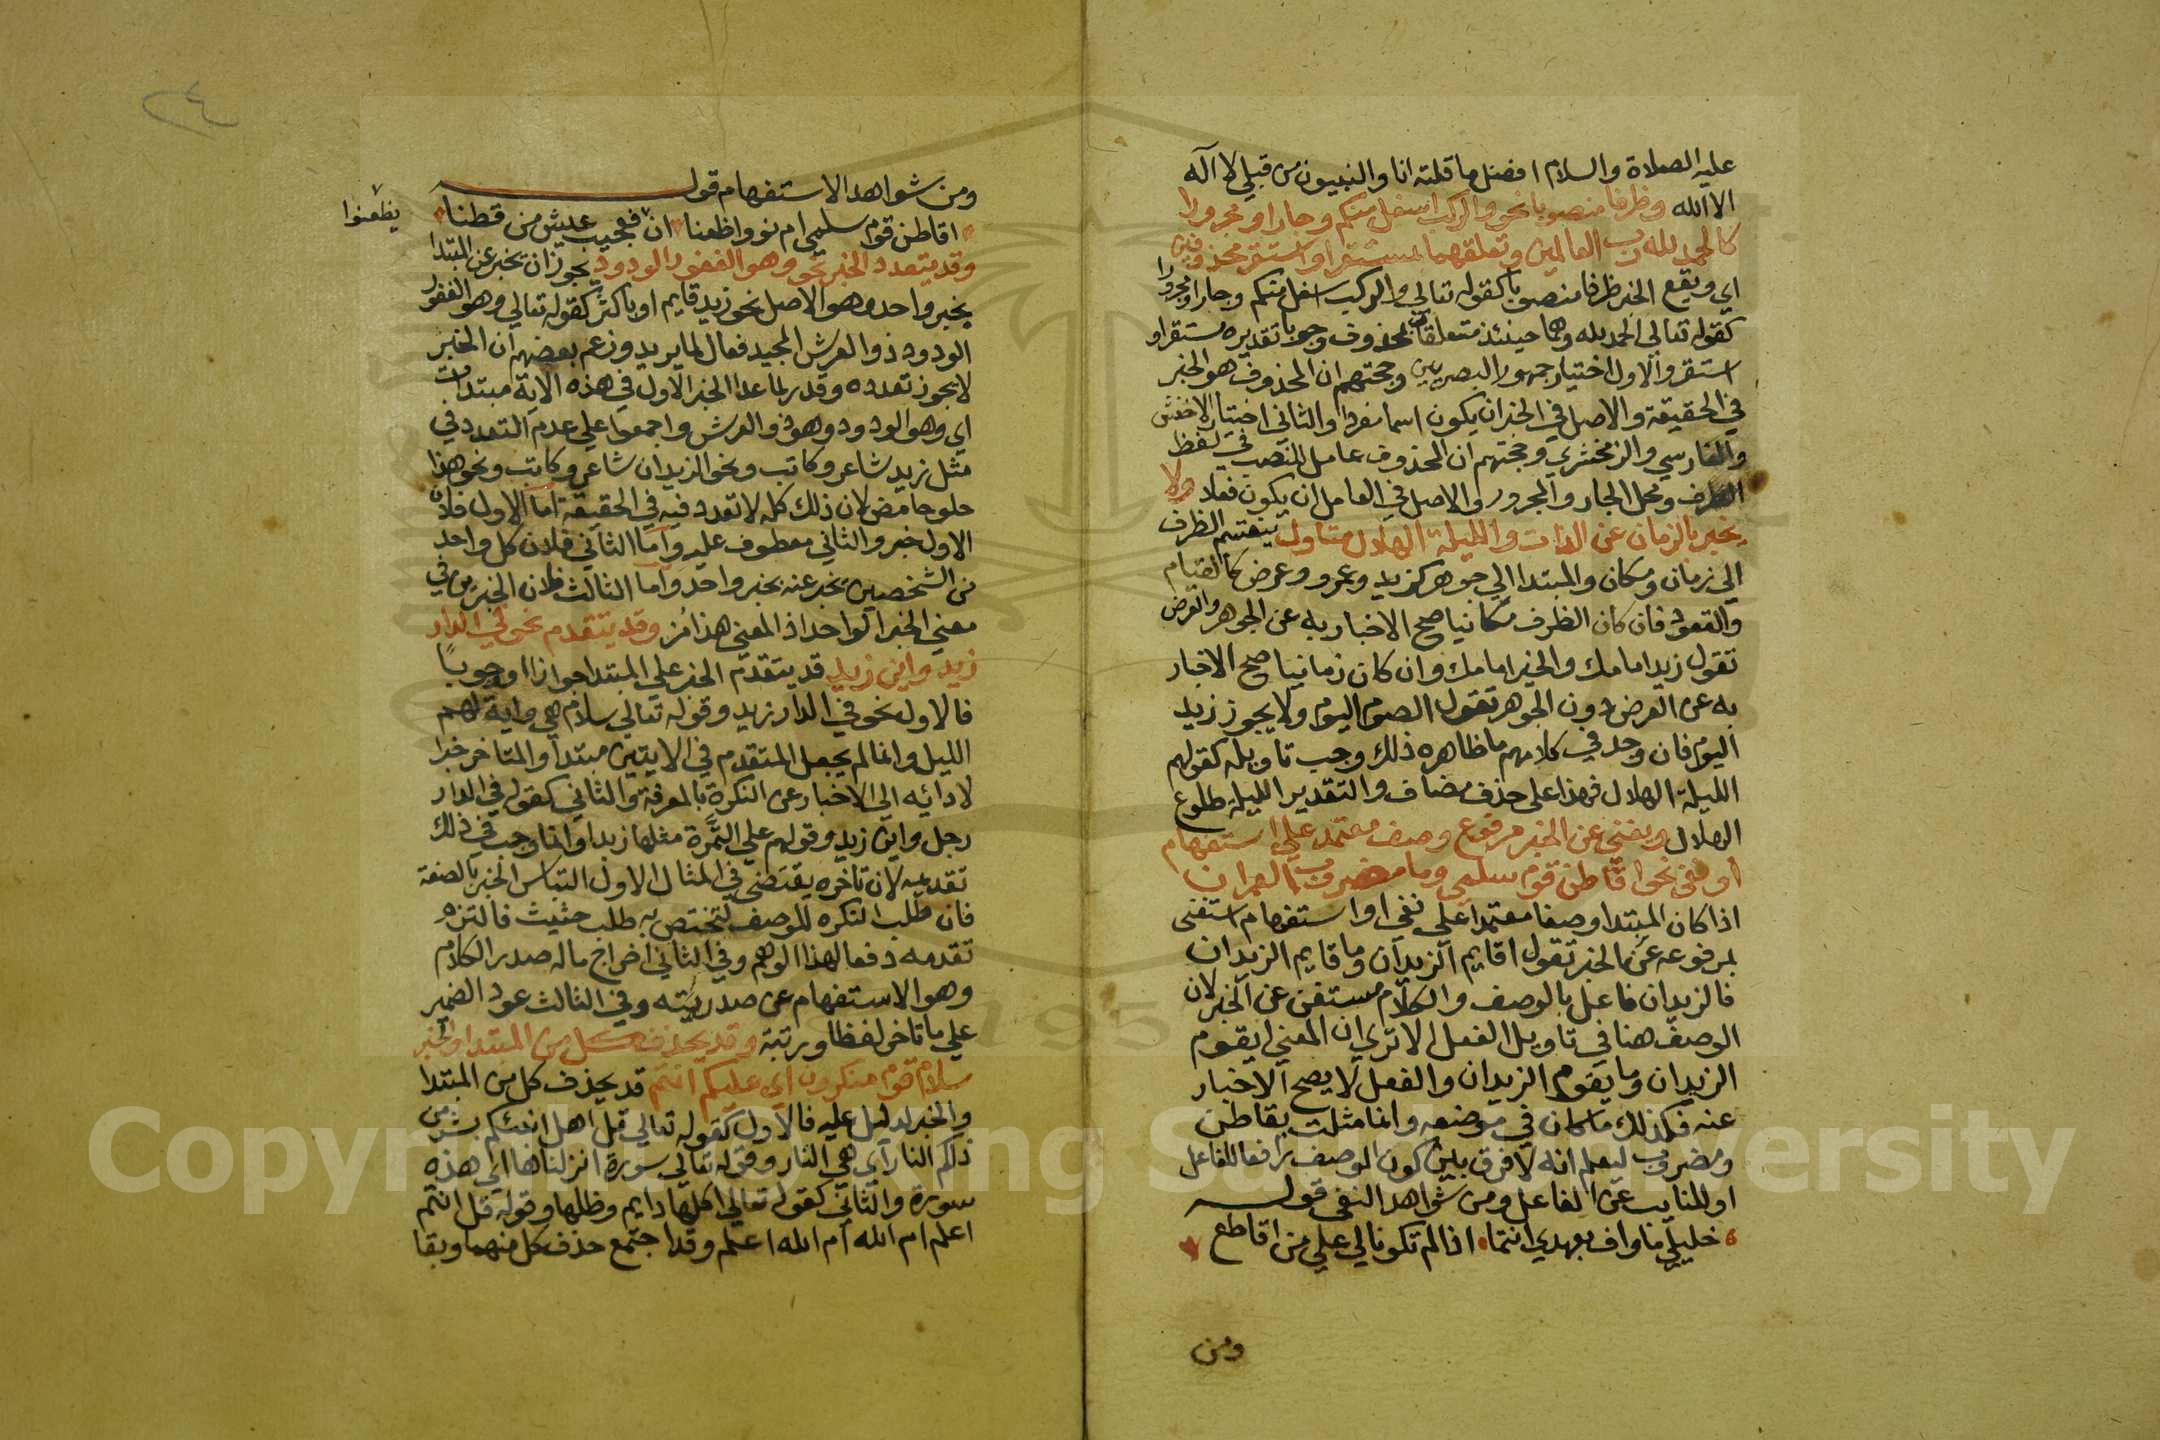 عليه الصلاة والسلام افضل ما قلته انا والنبيون من قبلي لا اله
الا الله وظرفا منصوبا نحو والركب اسفل منكم وجارا ومجرورا
كالحمد لله رب العالمين وتعلقهما بمستقر او استقر محذوفين
اي ويقع الخبر ظرفا منصوبا كقوله تعالي والركب اسفل منكم وجارا ومجرورا
كقوله تعالي الحمد لله وهما حينئذ متعلقان بمحذوف وجوبا تقديره مستقر او
استقر والاول اختيار جمهور البصريين وحجتهم ان المحذوف هو الخبر
في الحقيقة والاصل في الخبر ان يكون اسما مفردا والثاني اختيار الاخفش
والفارسي والزمخشري وحجتهم ان المحذوف عامل للنصب في لفظ
الظرف ومحل الجار والمجرور والاصل في العامل ان يكون فعلا ولا
يخبر بالزمان عن الذات والليلة الهلال متاول ينقسم الظرف
الي زمان ومكان والمبتدا الي جوهر كزيد وعمرو وعرض كالقيام
والقعود فان كان الظرف مكانيا صح الاخبار به عن الجوهر والعرض
تقول زيد امامك والخير امامك وان كان زمانيا صح الاخبار
به عن العرض دون الجوهر تقول الصوم اليوم ولا يجوز زيد
اليوم فان وجد في كلامهم ما ظاهره ذلك وجب تاويله كقولهم
الليلة الهلال فهذا علي حذف مضاف والتقدير الليلة طلوع
الهلال ويغني عن الخبر مرفوع وصف معتمد علي استفهام
او نفي نحو اقاطن قوم سلمي وما مضروب العمران
اذا كان المبتدا وصفا معتمدا علي نفي او استفهام استغني
بمرفوعه عن الخبر تقول اقايم الزيدان وما قايم الزيدان
فالزيدان فاعل بالوصف والكلام مستغن عن الخبر لان
الوصف هنا في تاويل الفعل الا تري ان المعني ايقوم
الزيدان وما يقوم الزيدان والفعل لا يصح الاخبار
عنه فكذلك ما كان في موضعه وانما مثلت بقاطن
ومضروب ليعلم انه لا فرق بين كون الوصف رافعا للفاعل
او للنايب عن الفاعل ومن شواهد النفي قوله
خليلي ما واف بعهدي انتما اذا لم تكونا لي علي من اقاطع
ومن
٢٤
ومن شواهد الاستفهام قوله
اقاطن قوم سلمي ام نووا ظعنا ان فعجيب عيش من قطنا
يظعنوا
وقد يتعدد الخبر نحو وهو الغفور الودود يجوز ان يخبر عن المبتدا
بخبر واحد وهو الاصل نحو زيد قايم او باكثر كقوله تعالي وهو الغفور
الودود ذو العرش المجيد فعال لما يريد وزعم بعضهم ان الخبر
لا يجوز تعدده وقدر لما عدا الخبر الاول في هذه الاية مبتدات
اي وهو الودود وهو ذو العرش واجمعوا علي عدم التعدد في
مثل زيد شاعر وكاتب ونحو الزيدان شاعر وكاتب ونحو هذا
حلو حامض لان ذلك كله لا تعدد فيه في الحقيقة اما الاول فلان
الاول خبر والثاني معطوف عليه واما الثاني فلان كل واحد
من الشخصين مخبر عنه بخبر واحد واما الثالث فلان الخبرين في
معني الخبر الواحد اذ المعني هذا مز وقد يتقدم نحو في الدار
زيد واين زيد قد يتقدم الخبر علي المبتدا جوازا او وجوبا
فالاول نحو في الدار زيد وقوله تعالي سلام هي واية لهم
الليل وانما لم يجعل المتقدم في الايتين مبتدا والمتاخر خبرا
لادائه الي الاخبار عن النكرة بالمعرفة والثاني كقولك في الدار
رجل واين زيد وقولهم علي التمرة مثلها زبدا وانما وجب في ذلك
تقديمه لان تاخره يقتضي في المثال الاول التباس الخبر بالصفة
فان طلب النكره للوصف لتختص به طلب حثيث فالتزم
تقدمه دفعا لهذا الوهم وفي الثاني اخراج ماله صدر الكلام
وهو الاستفهام عن صدريته وفي الثالث عود الضمير
علي ما تاخر لفظا ورتبة وقد يحذف كل من المبتدا والخبر
سلام قوم منكرون اي عليكم انتم قد يحذف كل من المبتدا
والخبر لدليل عليه فالاول كقوله تعالي قل اهل انبئكم بشر من
ذلكم النار اي هي النار وقوله تعالي سورة انزلناها اي هذه
سورة والثاني كقوله تعالي اكلها دايم وظلها وقوله قل اانتم
اعلم ام الله ام الله اعلم وقد اجتمع حذف كل منهما وبقا
Copyright © King Saud University
195